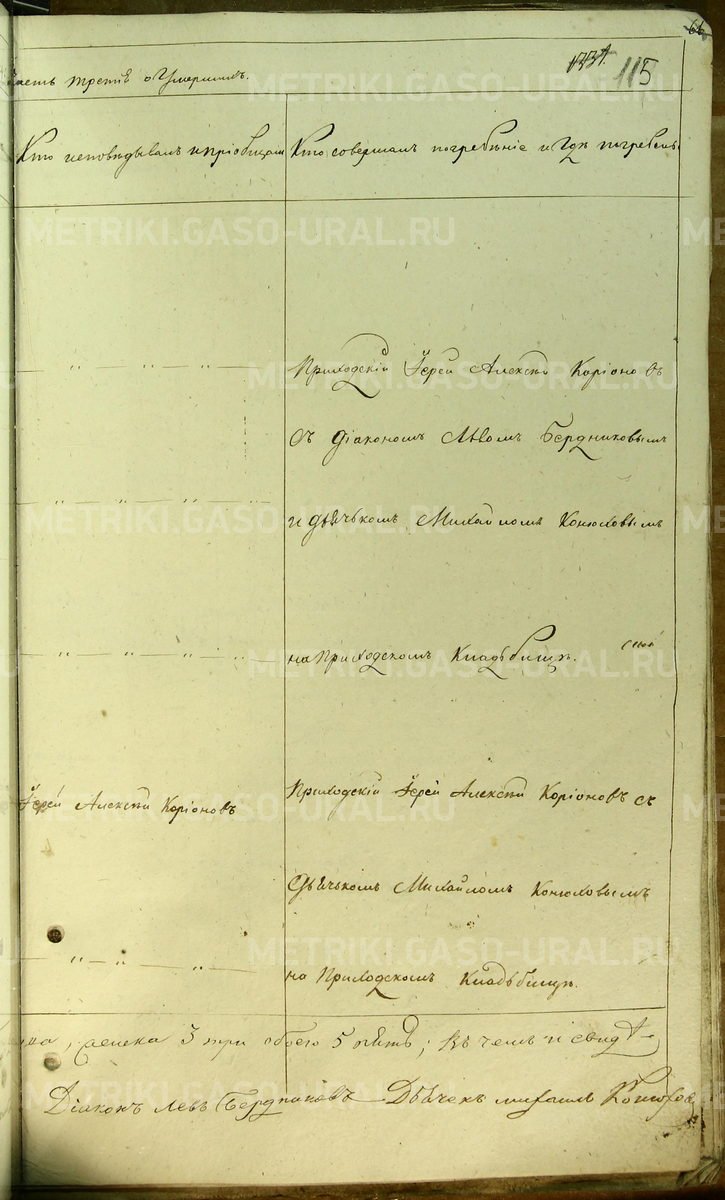 66
часть третiя о Умершихъ.
1334. 115
Кто исповѣдывалъ и прiобщалъ
Кто совершалъ погребѣнiе и Гдѣ погребены
METRIKI.GASO-URAL.RU
— „ — „ — „ —
Приходскiй Iерей Алексѣй Корiоновъ
Съ Дiакономъ Львомъ Бердниковымъ
— „ — „ — „ — „ —
и дьячькомъ Михайломъ Конюховымъ
— „ — „ — „ — „ —
на Приходскомъ Кладьбищѣ.
Iерей Алексѣй Корiоновъ
Приходскiй Iерей Алексѣй Корiоновъ съ
Дьячькомъ Михайломъ Конюховымъ
— „ — „ — „ —
на Приходскомъ Кладьбищѣ.
женска 3 три обоего 5 пять; Въ чемъ и свидѣ
Дiаконъ Левъ Бердниковъ Дьячекъ михаилъ Конюховъ